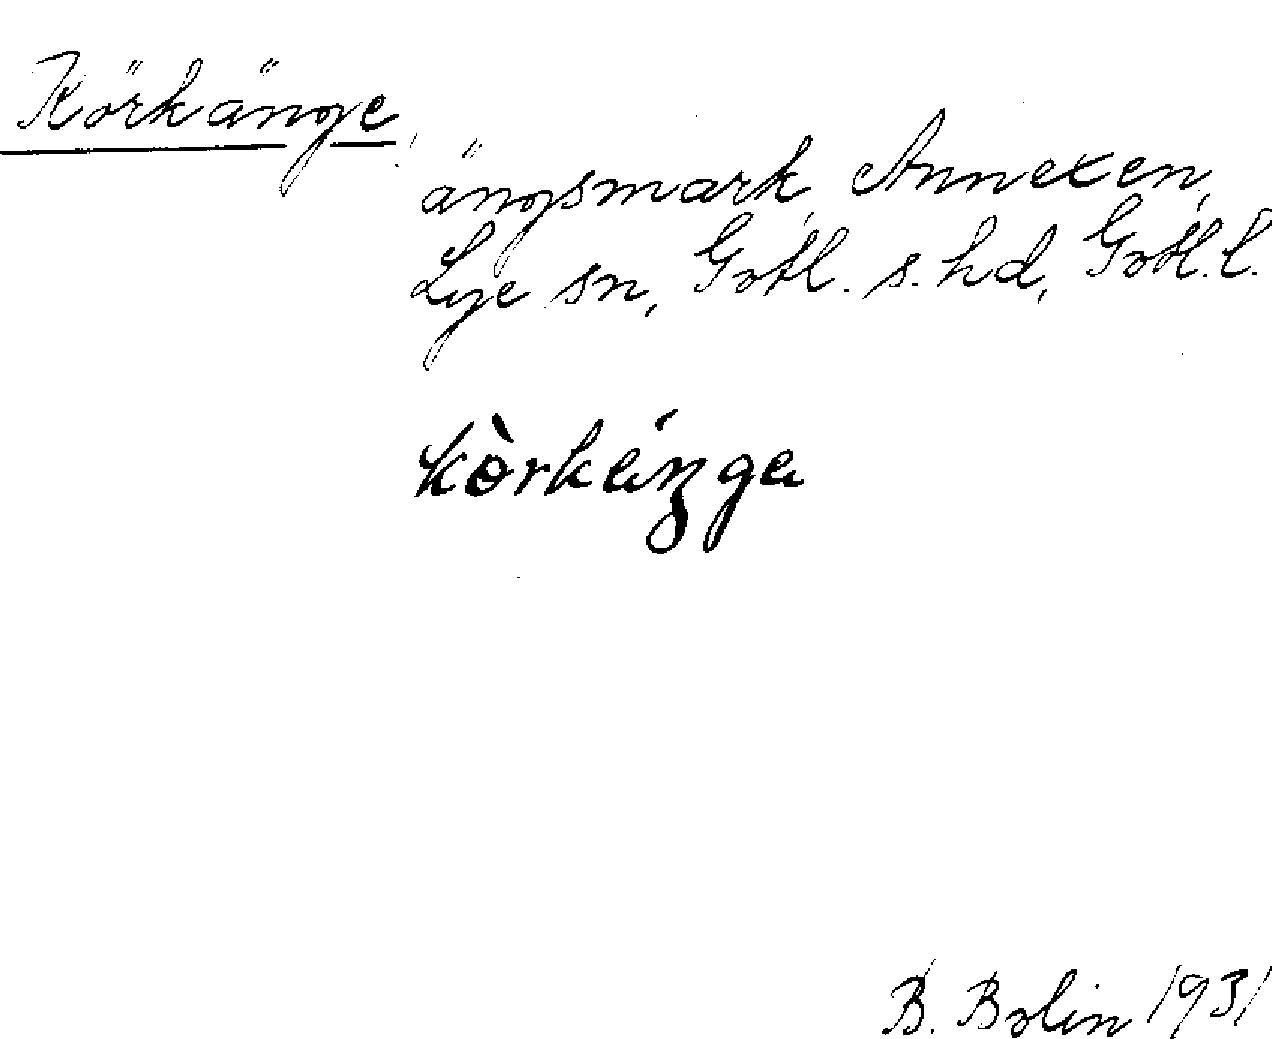 Körkänge
ängsmark, Annexen,
Lye sn, Gotl. s. hd, Gotl. l.
B. Bolin 1931